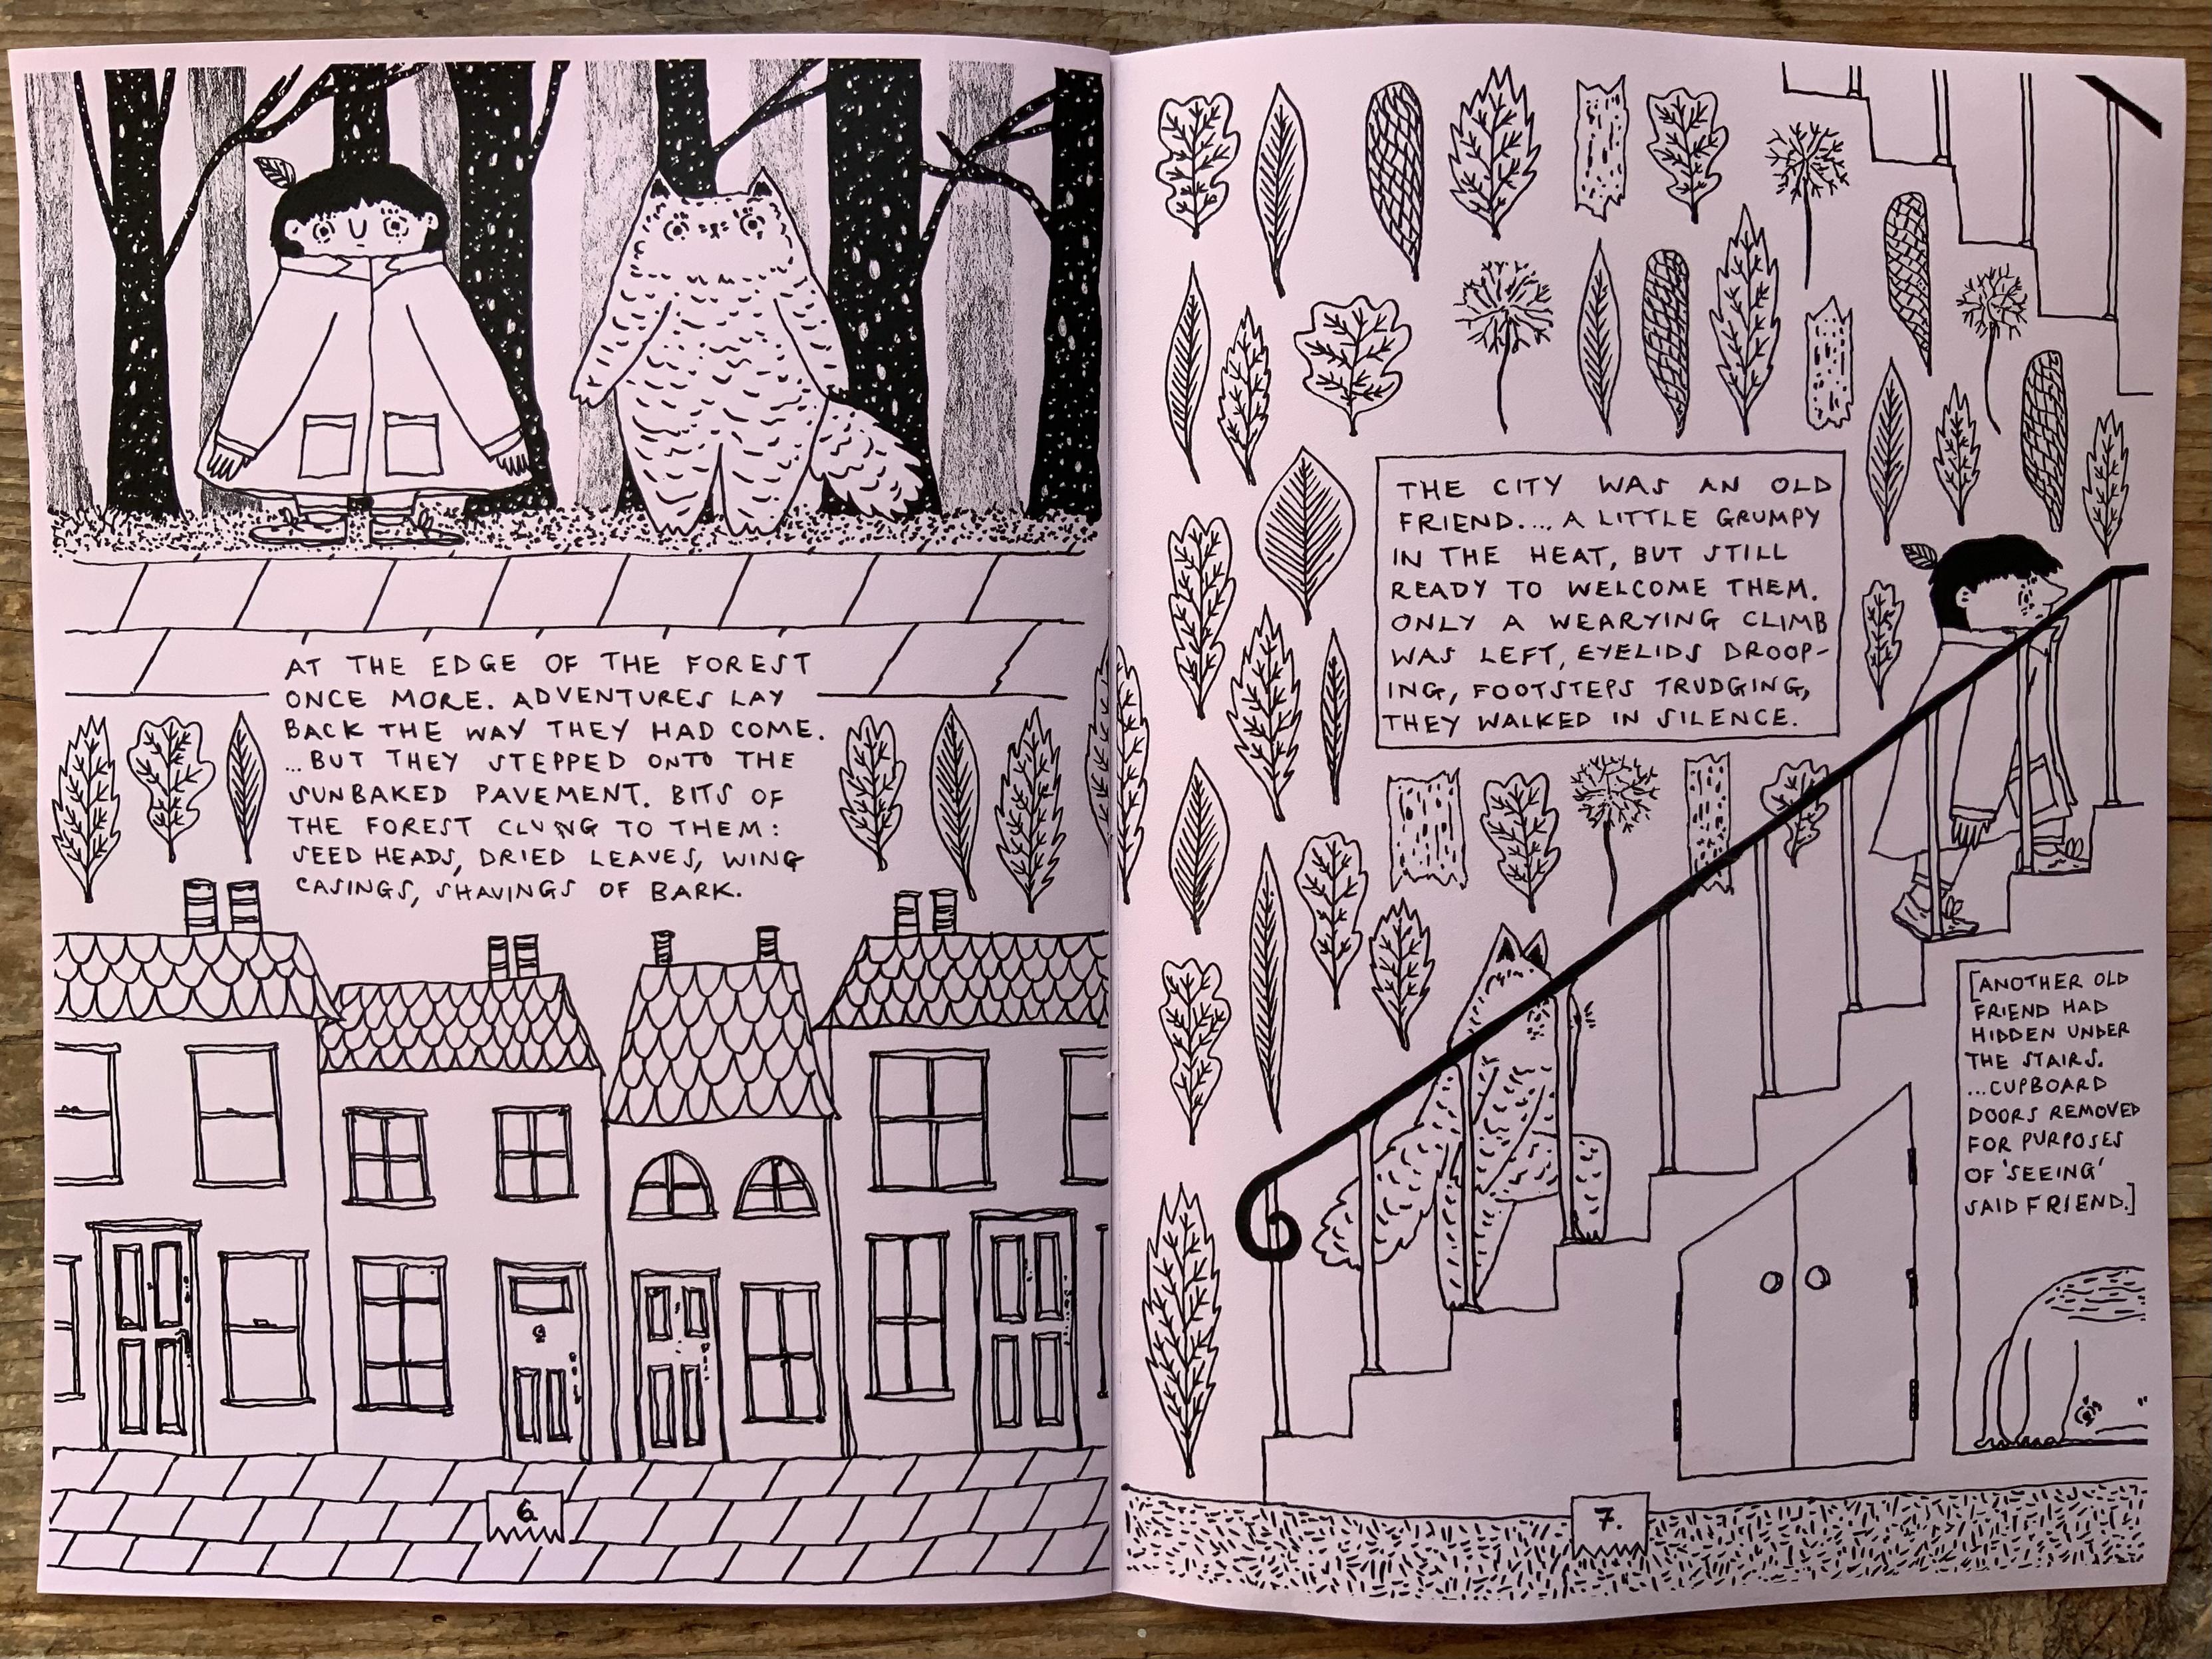 AT THE EDGE OF THE FOREST
ONCE MORE. ADVENTURES LAY
BACK THE WAY THEY HAD COME.
...BUT THEY STEPPED ONTO THE
SUNBAKED PAVEMENT. BITS OF
THE FOREST CLUNG TO THEM:
SEED HEADS, DRIED LEAVES, WING
CASINGS, SHAVINGS OF BARK.
6.
THE CITY WAS AN OLD
FRIEND.... A LITTLE GRUMPY
IN THE HEAT, BUT STILL
READY TO WELCOME THEM.
ONLY A WEARYING CLIMB
WAS LEFT, EYELIDS DROOP-
ING, FOOTSTEPS TRUDGING,
THEY WALKED IN SILENCE.
[ANOTHER OLD
FRIEND HAD
HIDDEN UNDER
THE STAIRS.
...CUPBOARD
DOORS REMOVED
FOR PURPOSES
OF 'SEEING'
SAID FRIEND.]
7.